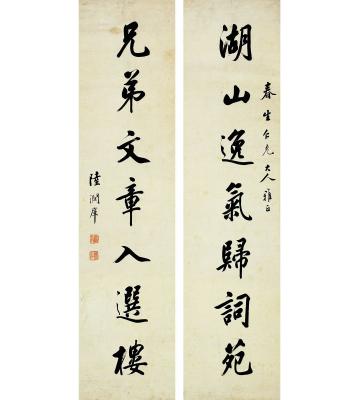 湖山逸氣歸詞苑
春生仁兄大人雅正
兄弟文章入選樓
陸潤庠